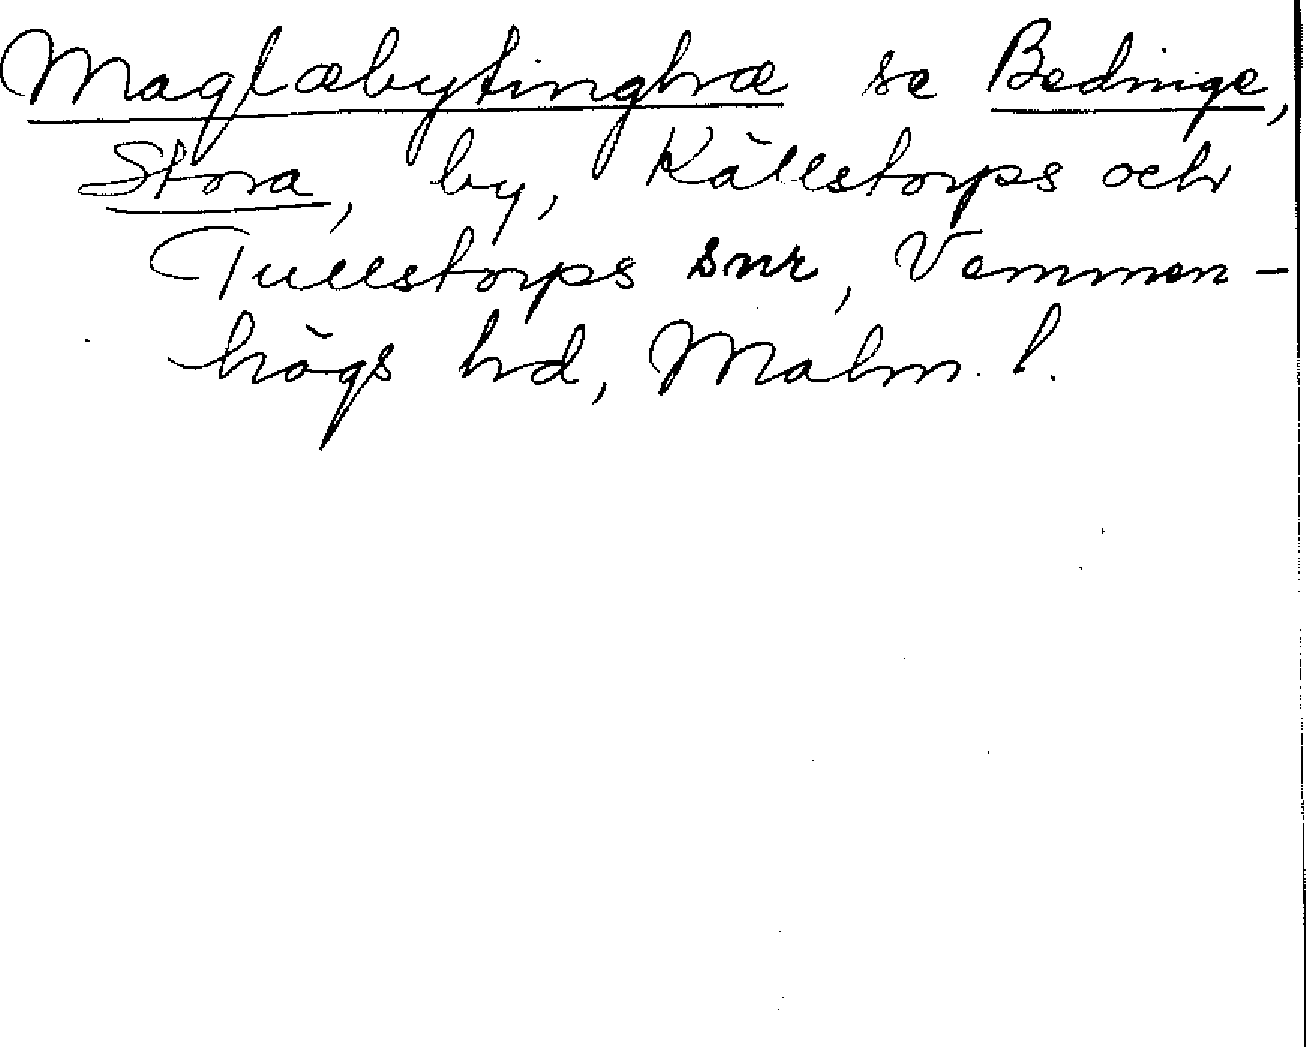 Maglæbytinghræ se Bedinge,
Stora, by, Källstorps och
Tullstorps snr, Vemmen-
högs hd, Malm. l.